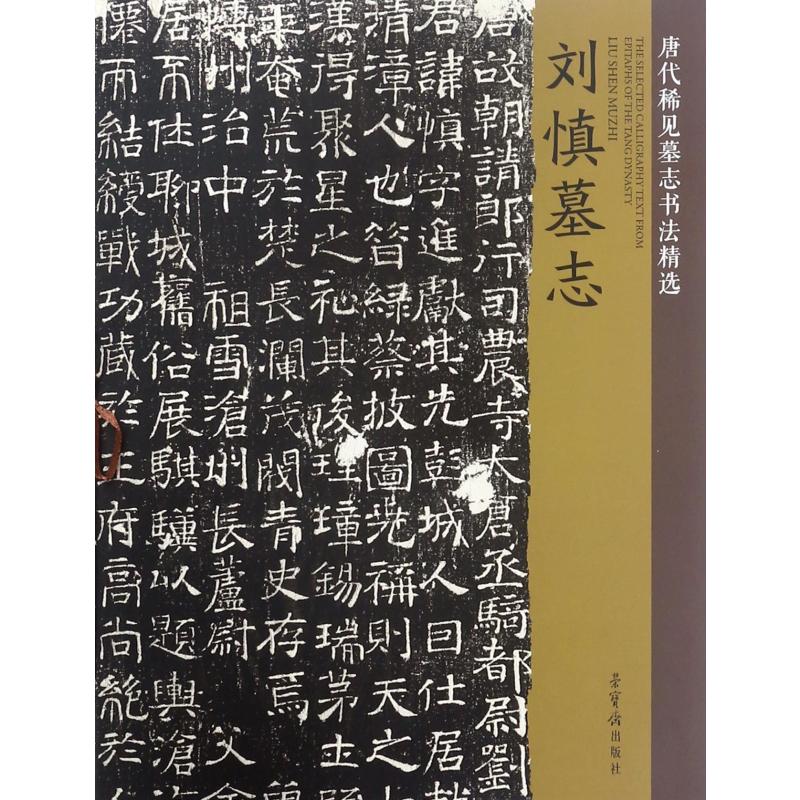 唐代稀见墓志书法精选
THE SELECTED CALLIGRAPHY TEXT FROM
EPITAPHS OF THE TANG DYNASTY
LIU SHEN MUZHI
刘慎墓志
荣寶齋出版社
唐故朝請郎行司農寺太倉丞騎都尉劉
君諱慎字進獻其先彭城人曰仕居
清漳人也昔綠蔡披圖光稱則天之
漢得聚星之祀其後理璋錫瑞茅土
王奄荒於楚長瀾茂閥青史存焉
州治中 祖雪滄州長蘆尉 父
居不仕聊城舊俗展騏驥以題輿滄
僊而結綬戰功藏於王府高尚絶於